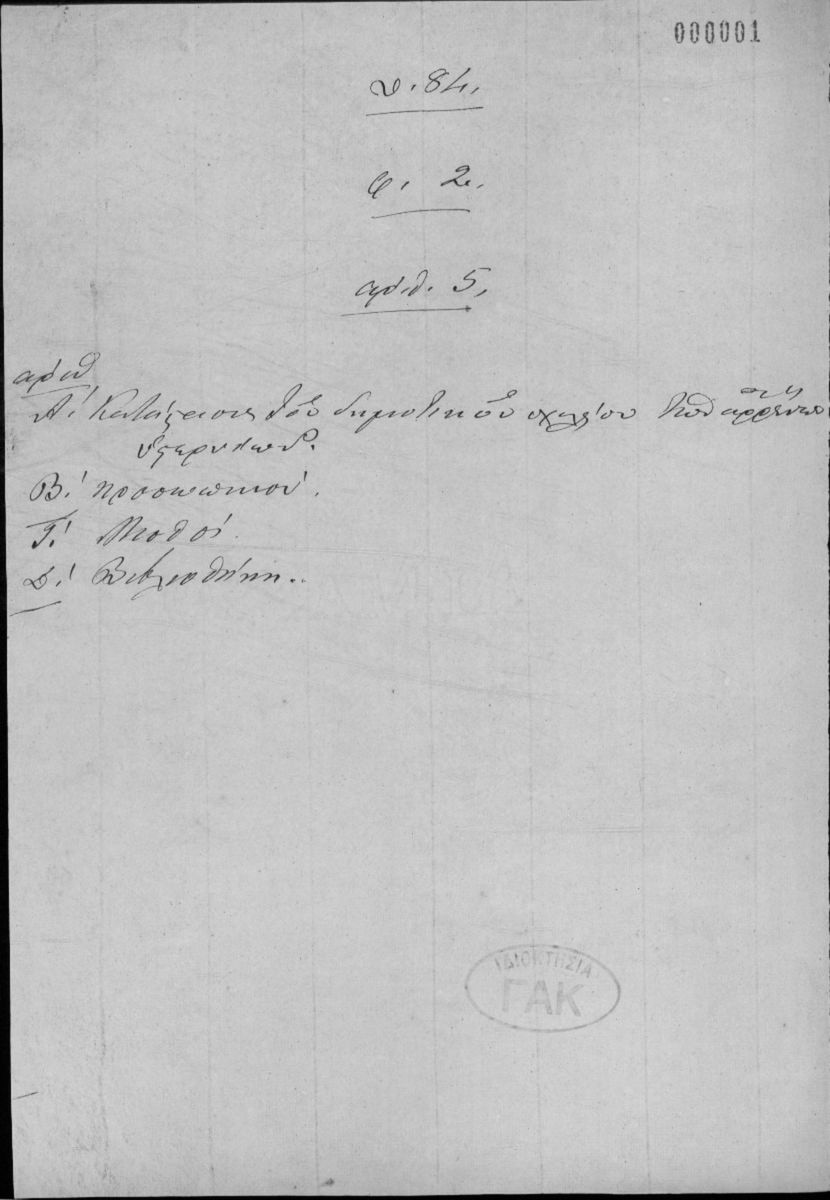 000001
υ. 84.
φ. 2.
αριθ. 5.
αριθ
Α.' Κατάστασις τοῦ δημοτικοῦ σχολείου τῶν ἀρρένων
Β.' προσωπικού.
Γ.' Μισθοί.
Δ.' Βιβλιοθήκη..
ΙΔΙΟΚΤΗΣΙΑ
ΓΑΚ